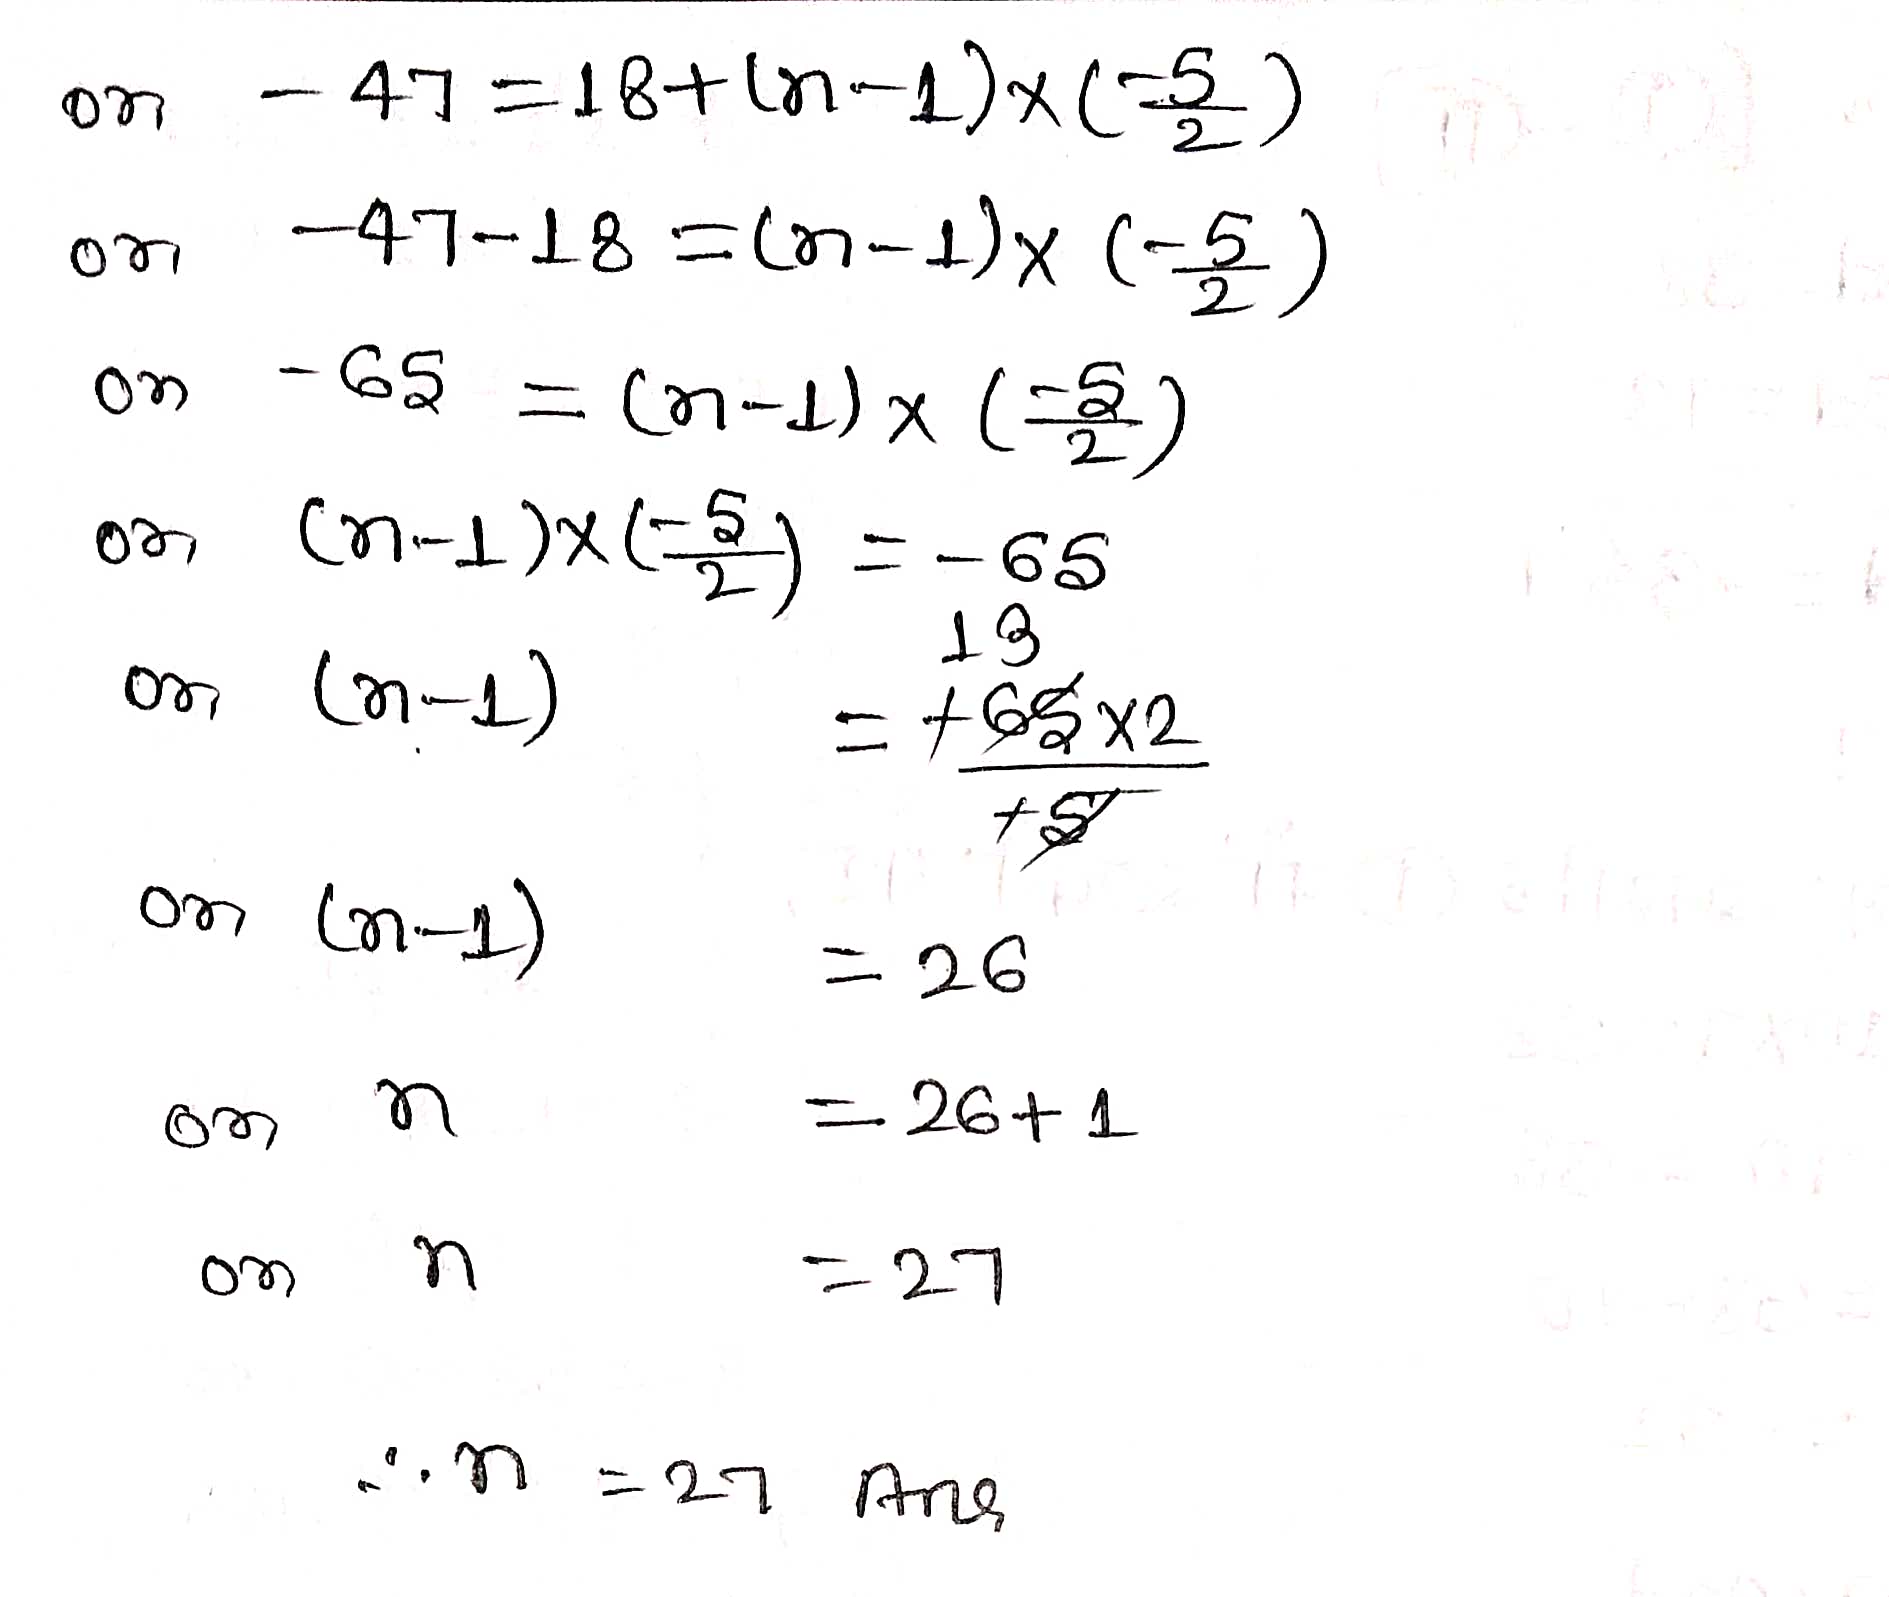 or -47 = 18 + (n-1) × (-5/2)
or -47-18 = (n-1) × (-5/2)
or -65 = (n-1) × (-5/2)
or (n-1) × (-5/2) = -65
13
or (n-1) = +65×2/+5
or (n-1) = 26
or n = 26+1
or n = 27
∴ n = 27 Ans